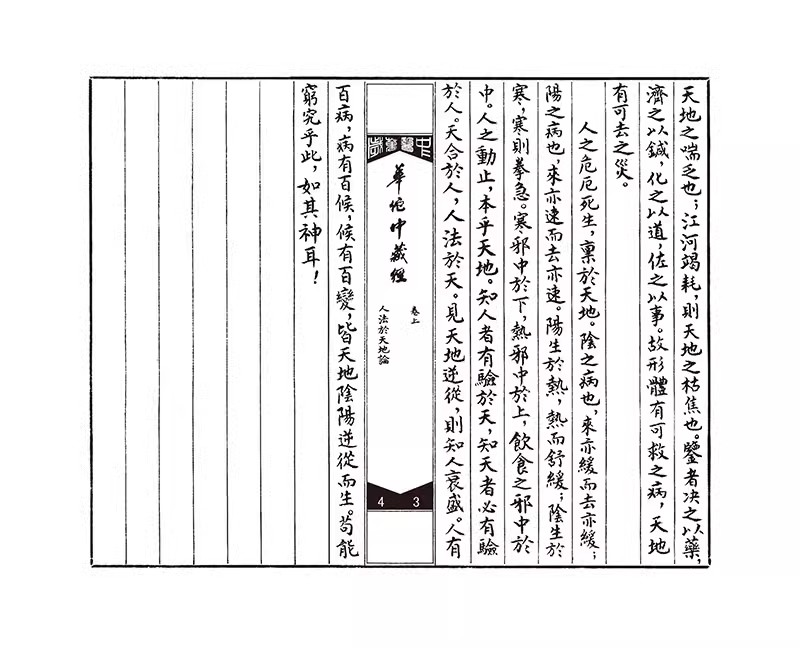 天地之喘乏也；江河竭耗，則天地之枯焦也。鑒者决之以藥，
濟之以鍼，化之以道，佐之以事。故形體有可救之病，天地
有可去之災。
人之危厄死生，稟於天地。陰之病也，來亦緩而去亦緩；
陽之病也，來亦速而去亦速。陽生於熱，熱而舒緩；陰生於
寒，寒則拳急。寒邪中於下，熱邪中於上，飲食之邪中於
中。人之動止，本乎天地。知人者有驗於天，知天者必有驗
於人。天合於人，人法於天。見天地逆從，則知人衰盛。人有
華佗中藏經
卷上
人法於天地論
4 3
百病，病有百候，候有百變，皆天地陰陽逆從而生。苟能
窮究乎此，如其神耳！